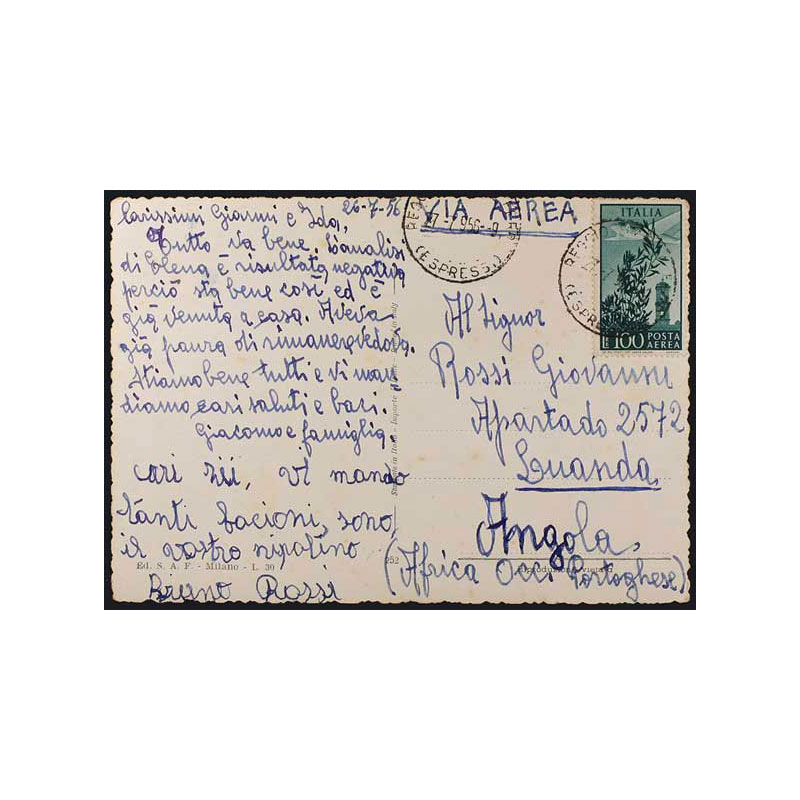 26-7-56
Carissimi Gianni e Ida,
Tutto va bene. L'analisi
di Elena è risultata negativa
perciò sta bene così ed è
già venuta a casa. Aveva
già paura di rimanere vedova.
Stiamo bene tutti e vi man
diamo cari saluti e baci.
Giacomo e famiglia.
cari zii, vi mando
tanti bacioni, sono
il vostro nipotino
Bruno Rossi
Ed. S. A. F. - Milano - L. 30
252
VIA AEREA
27-7-956-9
(ESPRESSI)
ITALIA
L.100 POSTA
AEREA
REGG
(ESPRES
Al Signor
Rossi Giovanni
Apartado 2572
Luanda
Angola
(Africa Occ. Portoghese)
Riproduzione vietata